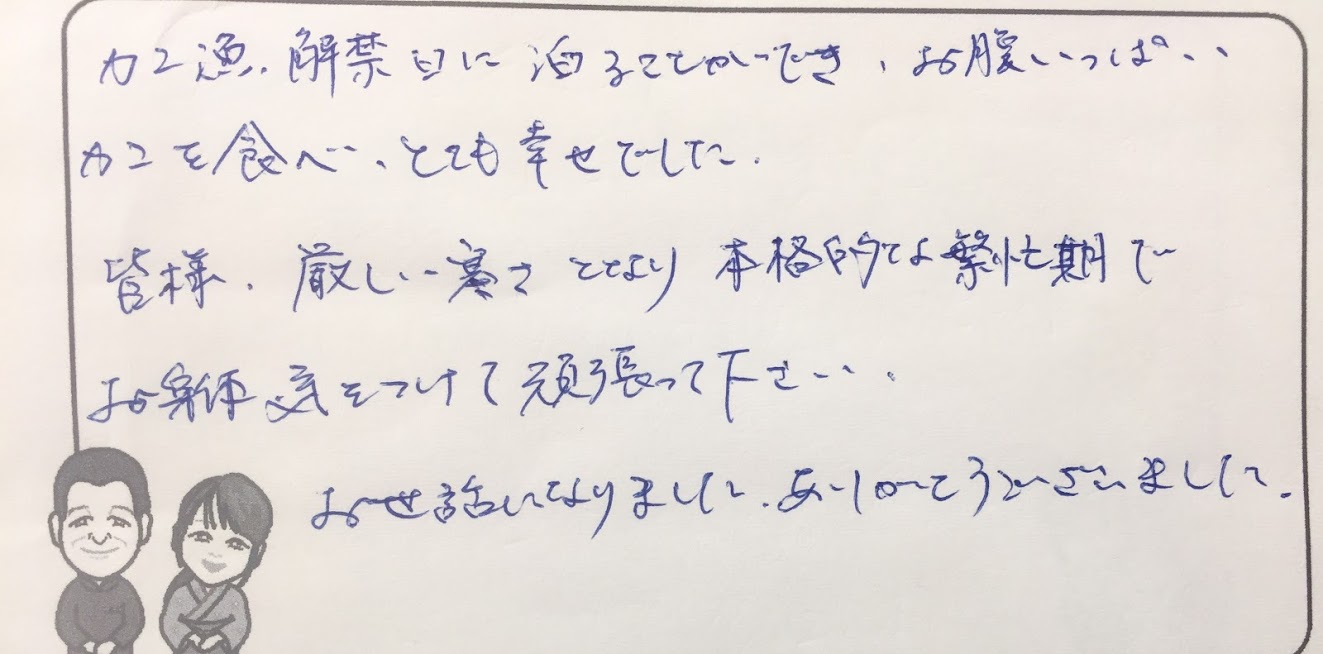 カニ漁、解禁日に泊ることができ、お腹いっぱい
カニを食べ、とても幸せでした。
皆様、厳しい寒さとなり本格的な繁忙期で
お身体気をつけて頑張って下さい。
お世話になりました。ありがとうございました。